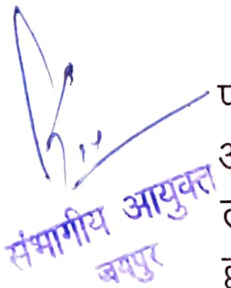 संभागीय आयुक्त
जयपुर